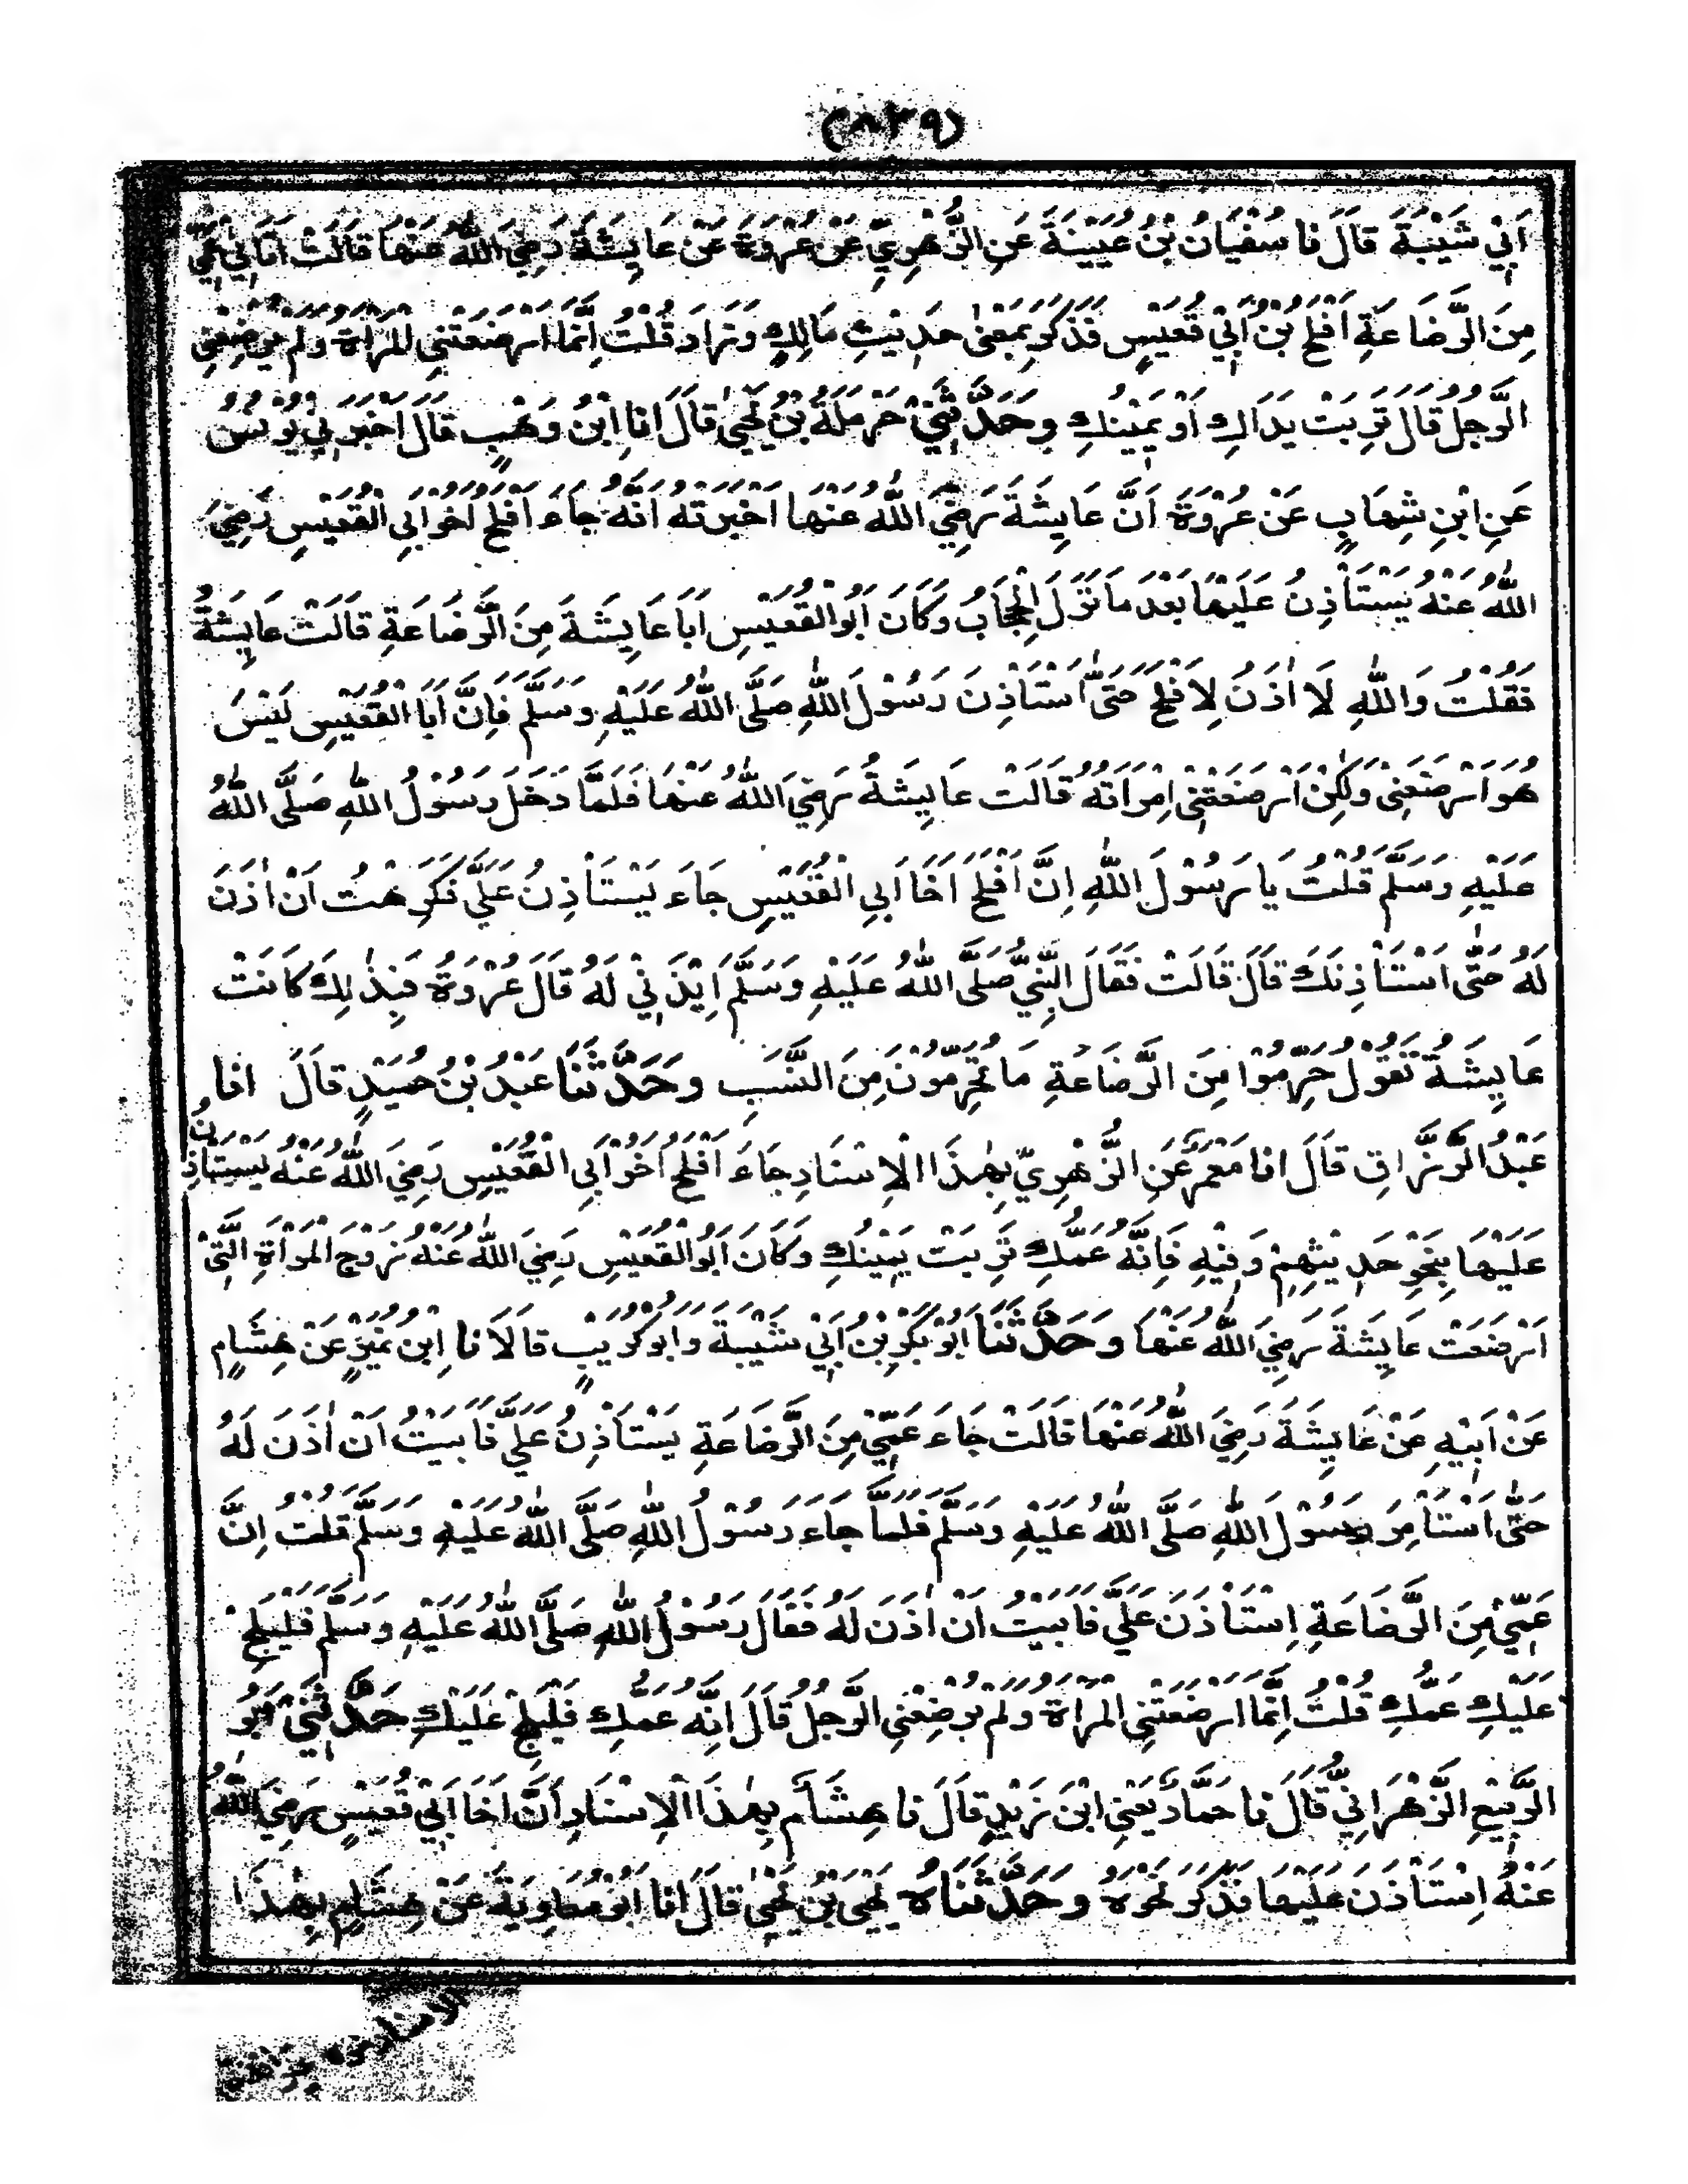 (٨٣٩)
اَبِيْ شَيْبَةَ قَالَ نَا سُفْيَانُ بْنُ عُيَيْنَةَ عَنِ الزُّهْرِيِّ عَنْ عُرْوَةَ عَنْ عَايِشَةَ رَضِيَ اللّٰهُ عَنْهَا قَالَتْ اَتَانِيْ عَمِّيْ
مِنَ الرَّضَاعَةِ اَفْلَحُ بْنُ اَبِيْ قُعَيْسٍ فَذَكَرَ بِمَعْنٰى حَدِيْثِ مَالِكٍ وَزَادَ قُلْتُ اِنَّمَا اَرْضَعَتْنِي الْمَرْاَةُ وَلَمْ يُرْضِعْنِي
الرَّجُلُ قَالَ تَرِبَتْ يَدَاكِ اَوْ يَمِيْنُكِ وحَدَّثَنِيْ حَرْمَلَةُ بْنُ يَحْيٰى قَالَ اَنَا ابْنُ وَهْبٍ قَالَ اَخْبَرَنِيْ يُوْنُسُ
عَنِ ابْنِ شِهَابٍ عَنْ عُرْوَةَ اَنَّ عَايِشَةَ رَضِيَ اللّٰهُ عَنْهَا اَخْبَرَتْهُ اَنَّهُ جَاءَ اَفْلَحُ اَخُوْ اَبِي الْقُعَيْسِ رَضِيَ
اللّٰهُ عَنْهُ يَسْتَاْذِنُ عَلَيْهَا بَعْدَ مَا نَزَلَ الْحِجَابُ وَكَانَ اَبُو الْقُعَيْسِ اَبَا عَايِشَةَ مِنَ الرَّضَاعَةِ قَالَتْ عَايِشَةُ
فَقُلْتُ وَاللّٰهِ لَا اٰذَنُ لِاَفْلَحَ حَتّٰى اَسْتَاْذِنَ رَسُوْلَ اللّٰهِ صَلَّى اللّٰهُ عَلَيْهِ وَسَلَّمَ فَاِنَّ اَبَا الْقُعَيْسِ لَيْسَ
هُوَ اَرْضَعَنِيْ وَلٰكِنْ اَرْضَعَتْنِي امْرَاَتُهُ قَالَتْ عَايِشَةُ رَضِيَ اللّٰهُ عَنْهَا فَلَمَّا دَخَلَ رَسُوْلُ اللّٰهِ صَلَّى اللّٰهُ
عَلَيْهِ وَسَلَّمَ قُلْتُ يَا رَسُوْلَ اللّٰهِ اِنَّ اَفْلَحَ اَخَا اَبِي الْقُعَيْسِ جَاءَ يَسْتَاْذِنُ عَلَيَّ فَكَرِهْتُ اَنْ اٰذَنَ
لَهُ حَتّٰى اَسْتَاْذِنَكَ قَالَ قَالَتْ فَقَالَ النَّبِيُّ صَلَّى اللّٰهُ عَلَيْهِ وَسَلَّمَ اِيْذَنِيْ لَهُ قَالَ عُرْوَةُ فَبِذٰلِكَ كَانَتْ
عَايِشَةُ تَقُوْلُ حَرِّمُوْا مِنَ الرَّضَاعَةِ مَا تُحَرِّمُوْنَ مِنَ النَّسَبِ وحَدَّثَنَا عَبْدُ بْنُ حُمَيْدٍ قَالَ اَنَا
عَبْدُ الرَّزَّاقِ قَالَ اَنَا مَعْمَرٌ عَنِ الزُّهْرِيِّ بِهٰذَا الْاِسْنَادِ جَاءَ اَفْلَحُ اَخُوْ اَبِي الْقُعَيْسِ رَضِيَ اللّٰهُ عَنْهُ يَسْتَاْذِنُ
عَلَيْهَا بِنَحْوِ حَدِيْثِهِمْ وَفِيْهِ فَاِنَّهُ عَمُّكِ تَرِبَتْ يَمِيْنُكِ وَكَانَ اَبُو الْقُعَيْسِ رَضِيَ اللّٰهُ عَنْهُ زَوْجَ الْمَرْاَةِ الَّتِيْ
اَرْضَعَتْ عَايِشَةَ رَضِيَ اللّٰهُ عَنْهَا وحَدَّثَنَا اَبُوْ بَكْرِ بْنُ اَبِيْ شَيْبَةَ وَاَبُوْ كُرَيْبٍ قَالَا نَا ابْنُ نُمَيْرٍ عَنْ هِشَامٍ
عَنْ اَبِيْهِ عَنْ عَايِشَةَ رَضِيَ اللّٰهُ عَنْهَا قَالَتْ جَاءَ عَمِّيْ مِنَ الرَّضَاعَةِ يَسْتَاْذِنُ عَلَيَّ فَاَبَيْتُ اَنْ اٰذَنَ لَهُ
حَتّٰى اَسْتَاْمِرَ رَسُوْلَ اللّٰهِ صَلَّى اللّٰهُ عَلَيْهِ وَسَلَّمَ فَلَمَّا جَاءَ رَسُوْلُ اللّٰهِ صَلَّى اللّٰهُ عَلَيْهِ وَسَلَّمَ قُلْتُ اِنَّ
عَمِّيْ مِنَ الرَّضَاعَةِ اِسْتَاْذَنَ عَلَيَّ فَاَبَيْتُ اَنْ اٰذَنَ لَهُ فَقَالَ رَسُوْلُ اللّٰهِ صَلَّى اللّٰهُ عَلَيْهِ وَسَلَّمَ فَلْيَلِجْ
عَلَيْكِ عَمُّكِ قُلْتُ اِنَّمَا اَرْضَعَتْنِي الْمَرْاَةُ وَلَمْ يُرْضِعْنِي الرَّجُلُ قَالَ اِنَّهُ عَمُّكِ فَلْيَلِجْ عَلَيْكِ حَدَّثَنِيْ اَبُو
الرَّبِيْعِ الزَّهْرَانِيُّ قَالَ نَا حَمَّادٌ يَعْنِي ابْنَ زَيْدٍ قَالَ نَا هِشَامٌ بِهٰذَا الْاِسْنَادِ اَنَّ اَخَا اَبِيْ قُعَيْسٍ رَضِيَ اللّٰهُ
عَنْهُ اِسْتَاْذَنَ عَلَيْهَا فَذَكَرَ نَحْوَهُ وحَدَّثَنَاهُ يَحْيَى بْنُ يَحْيٰى قَالَ اَنَا اَبُوْ مُعَاوِيَةَ عَنْ هِشَامٍ بِهٰذَا
الاسناد